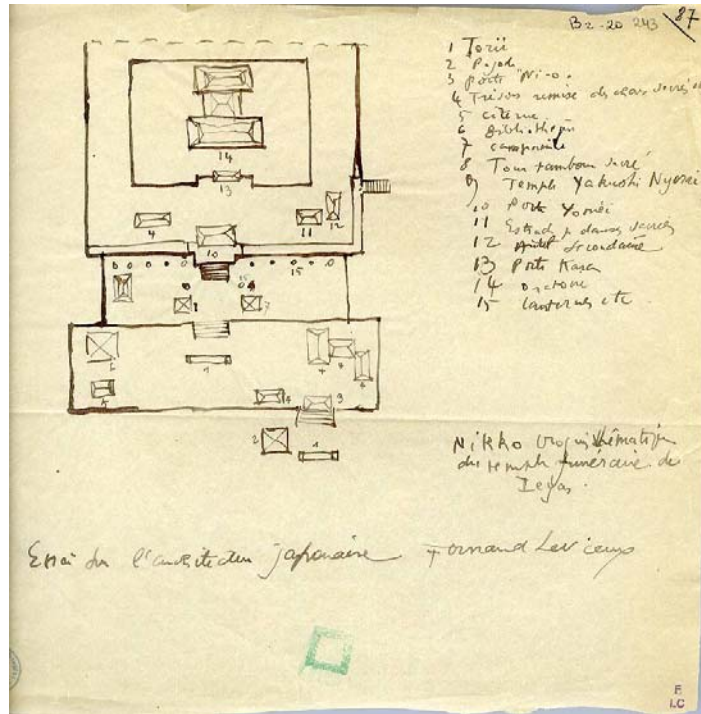 B2-20 243 87
1 Torii
2 Pagode
3 Porte Ni-o.
4 Trésors remise des chars sacrés
5 citerne
6 Bibliothèque
7 campanile
8 Tour tambour sacré
9 Temple Yakushi Nyorai
10 Porte Yomei
11 Estrade p danses sacrées
12 secondaire
13 Porte Kara
14 oratoire
15 lanternes etc
14
13
4
11
12
10
15
15
7
6
1
4
5
4
3
2
1
Nikko croquis schématique
du temple funéraire de
Ieyas.
Essai sur l'architecture japonaise Fernand Levieux
F.
I.C